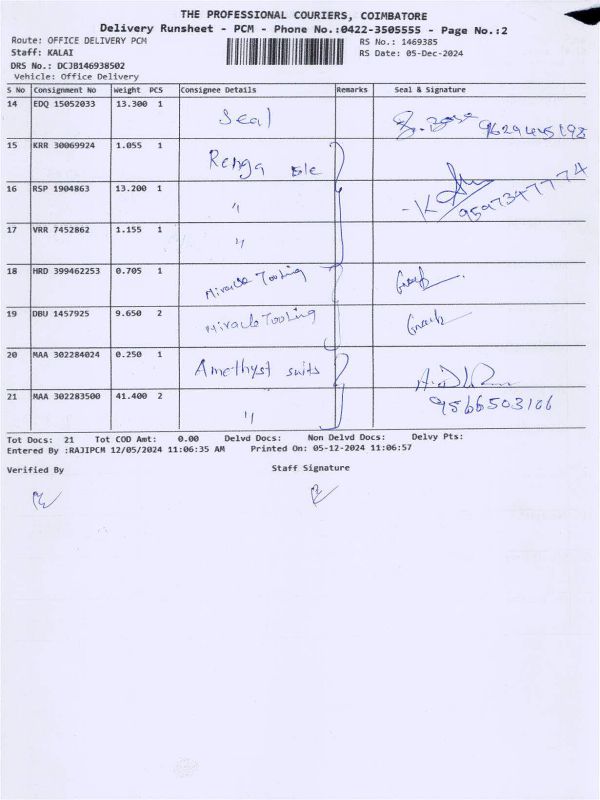 THE PROFESSIONAL COURIERS, COIMBATORE
Delivery Runsheet - PCM - Phone No.:0422-3505555 - Page No.:2
Route: OFFICE DELIVERY PCM RS No.: 1469385
Staff: KALAI RS Date: 05-Dec-2024
DRS No.: DCJB146938502
Vehicle: Office Delivery
S No Consignment No Weight PCS Consignee Details Remarks Seal & Signature
14 EDQ 15052033 13.300 1 Seal 9629445198
15 KRR 30069924 1.055 1 Renga
16 RSP 1904863 13.200 1 " 9597347774
17 VRR 7452862 1.155 1 "
18 HRD 399462253 0.705 1 Miracle Tooling
19 DBU 1457925 9.650 2 Miracle Tooling
20 MAA 302284024 0.250 1 Amethyst suits
21 MAA 302283500 41.400 2 " 9566503166
Tot Docs: 21 Tot COD Amt: 0.00 Delvd Docs: Non Delvd Docs: Delvy Pts:
Entered By :RAJIPCM 12/05/2024 11:06:35 AM Printed On: 05-12-2024 11:06:57
Verified By Staff Signature